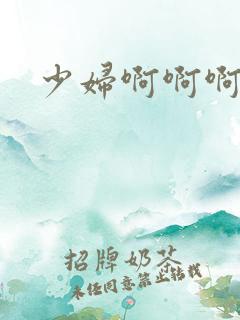 少婦啊啊啊
招牌奶茶
未经同意禁止转载